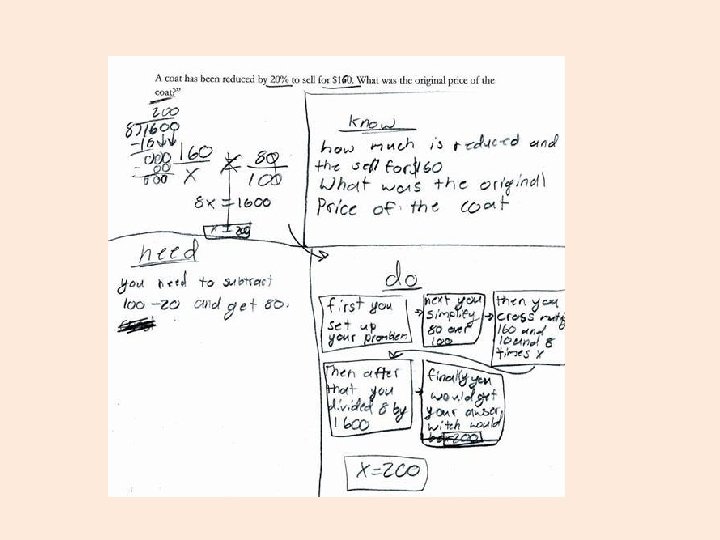 A coat has been reduced by 20% to sell for $160. What was the original price of the
coat?"
200
8)1600
-16
000
- 00
000
160 80
X 100
8x = 1600
Know
how much is reduced and
the sell for $160
What was the original
Price of the coat
need
you need to subtract
100 -20 and get 80.
do
first you
set up
your problem
next you
simplify
80 over
100
then you
cross multiply
160 and
10 and 8
times x
Then after
that you
divided 8 by
1600
finally you
would get
your answer
witch would
be 200
X=200